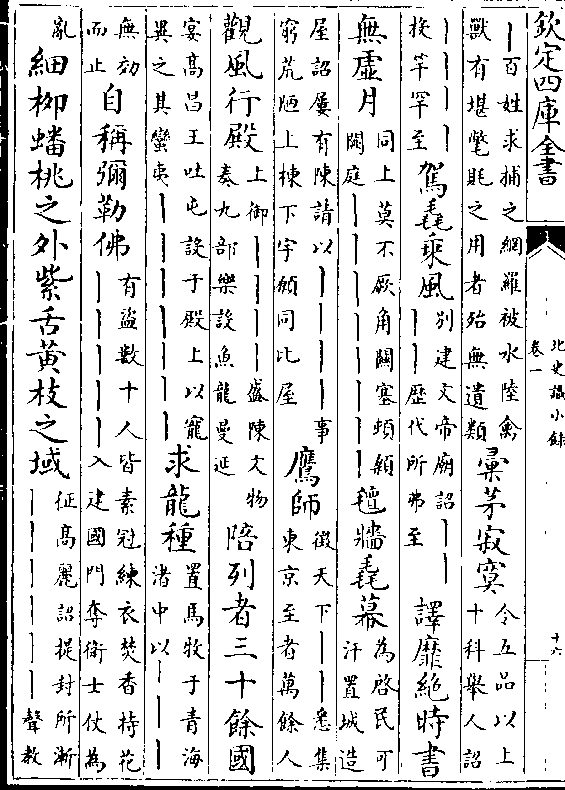 欽定四庫全書
北史識小錄
卷一
十六
｜百姓求捕之網羅被水陸禽
獸有堪氅毦之用者殆無遺類
彙茅寂寞
令五品以上
十科舉人詔
｜｜｜｜
投竿罕至
駕毳乗風
別建文帝廟詔｜｜
｜｜歷代所弗至
譯靡絶時書
無虚月
同上莫不厥角闕塞頓顙
闕庭｜｜｜｜｜｜
氊牆毳幕
為啓民可
汗置城造
屋詔屢有陳請以｜｜｜｜事
窮荒陋上棟下宇願同比屋
鷹師
徴天下｜｜悉集
東京至者萬餘人
觀風行殿
上御｜｜｜｜盛陳文物
奏九部樂設魚龍曼延
陪列者三十餘國
宴髙昌王吐屯設于殿上以寵
異之其蠻夷｜｜｜｜｜｜｜
求龍種
置馬牧于青海
渚中以｜｜｜
無効
而止
自稱彌勒佛
有盜數十人皆素冠練衣焚香持花
｜｜｜｜｜入建國門奪衛士仗為
亂
細栁蟠桃之外紫舌黄枝之域
征髙麗詔提封所漸
｜｜｜｜｜｜聲教